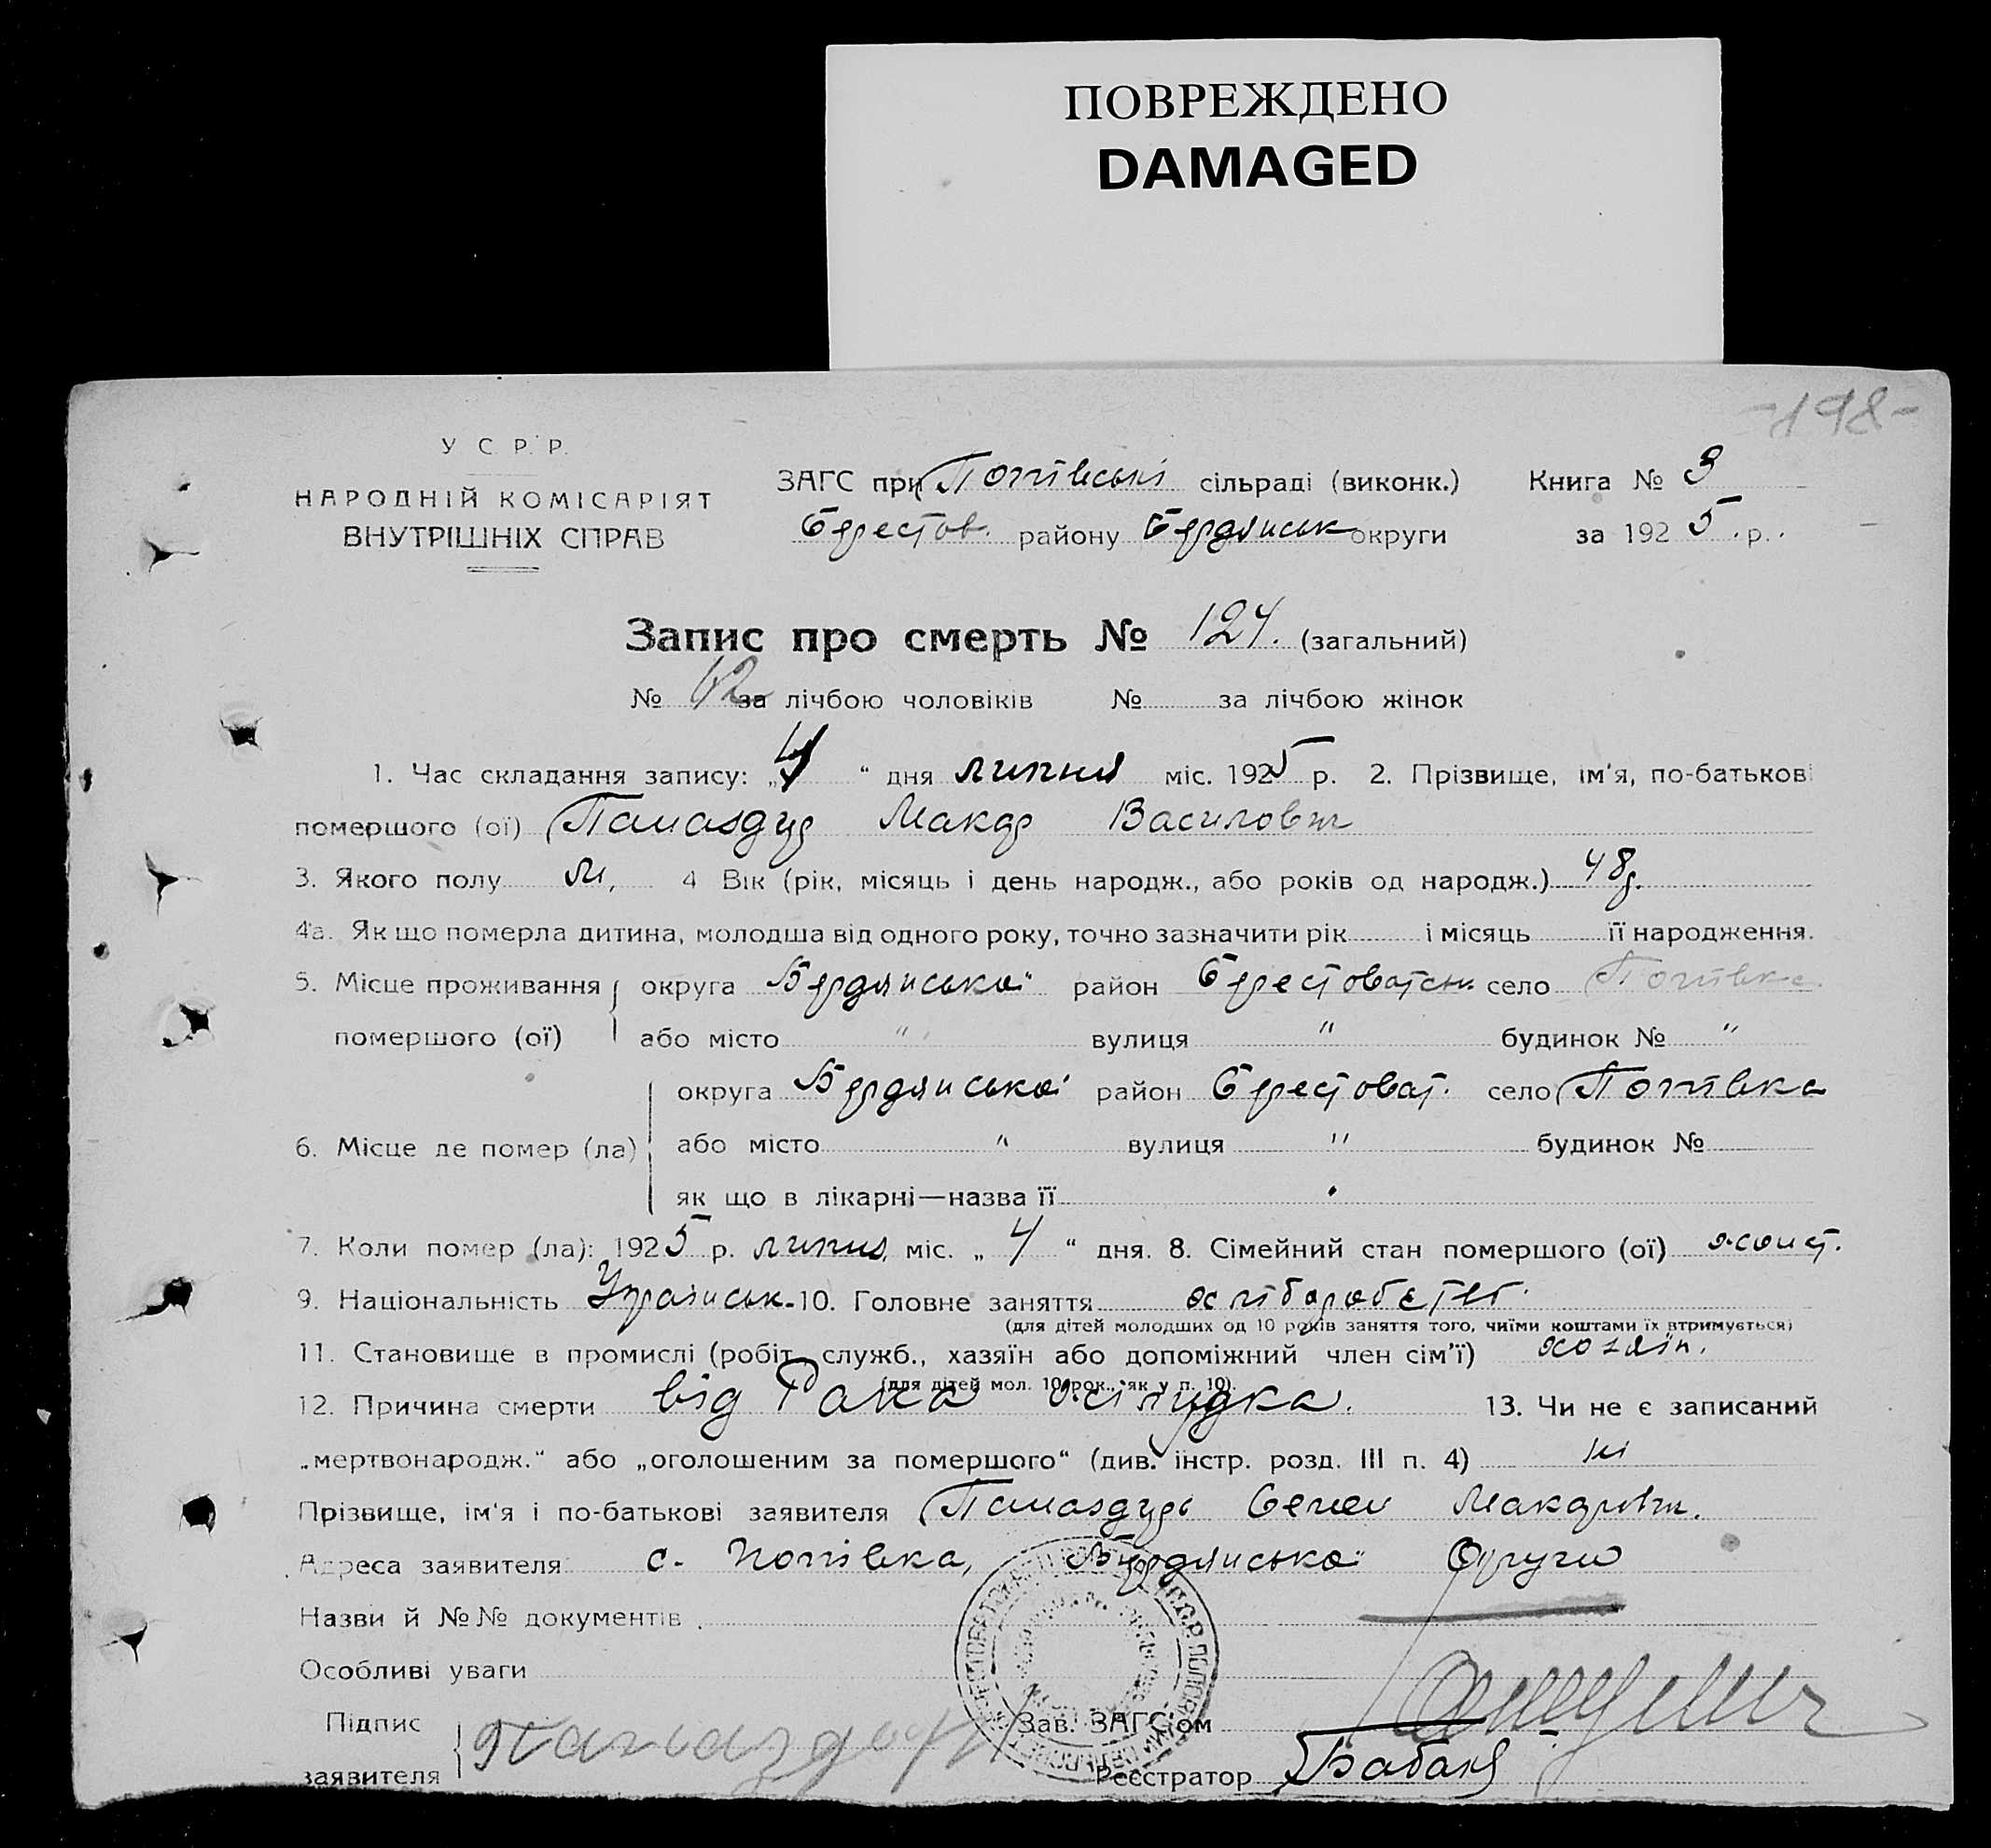 ПОВРЕЖДЕНО
DAMAGED
-198-
У С Р Р.
НАРОДНІЙ КОМІСАРІЯТ
ВНУТРІШНІХ СПРАВ
ЗАГС при Попівські сільраді (виконк.) Книга № 3
Берестов. району Бердянськ округи за 1925 р.
Запис про смерть № 124. (загальний)
№ 62 за лічбою чоловіків № за лічбою жінок
1. Час складання запису: „4“ дня липня міс. 1925 р. 2. Прізвище, ім'я, по-батькові
помершого (ої) Памаздир Макар Василович
3. Якого полу м, 4 Вік (рік, місяць і день народж., або років од народж.) 48 р.
4а. Як що померла дитина, молодша від одного року, точно зазначити рік і місяць її народження.
5. Місце проживання округа Бердянська район Берестоватськ село Попівка
помершого (ої) або місто " вулиця " будинок № "
округа Бердянська район Берестоват. село Попівка
6. Місце де помер (ла) або місто " вулиця " будинок №
як що в лікарні—назва її
7. Коли помер (ла): 1925 р. липня міс. „4“ дня. 8. Сімейний стан помершого (ої) жонат.
9. Національність Українськ. 10. Головне заняття хліборобство.
(для дітей молодших од 10 років заняття того, чиїми коштами їх втримується)
11. Становище в промислі (робіт., служб., хазяїн або допоміжний член сім'ї) хозяїн.
(для дітей мол. 10 рок., як у п. 10).
12. Причина смерти від Рака жілудка. 13. Чи не є записаний
„мертвонародж.“ або „оголошеним за помершого“ (див. інстр. розд. III п. 4) ні
Прізвище, ім'я і по-батькові заявителя Памаздирь Семен Макарович.
Адреса заявителя с. Попівка, Бердянська Округи
Назви й №№ документів
Особливі уваги
Підпис
заявителя
Зав. ЗАГС'ом
Реєстратор Бабак